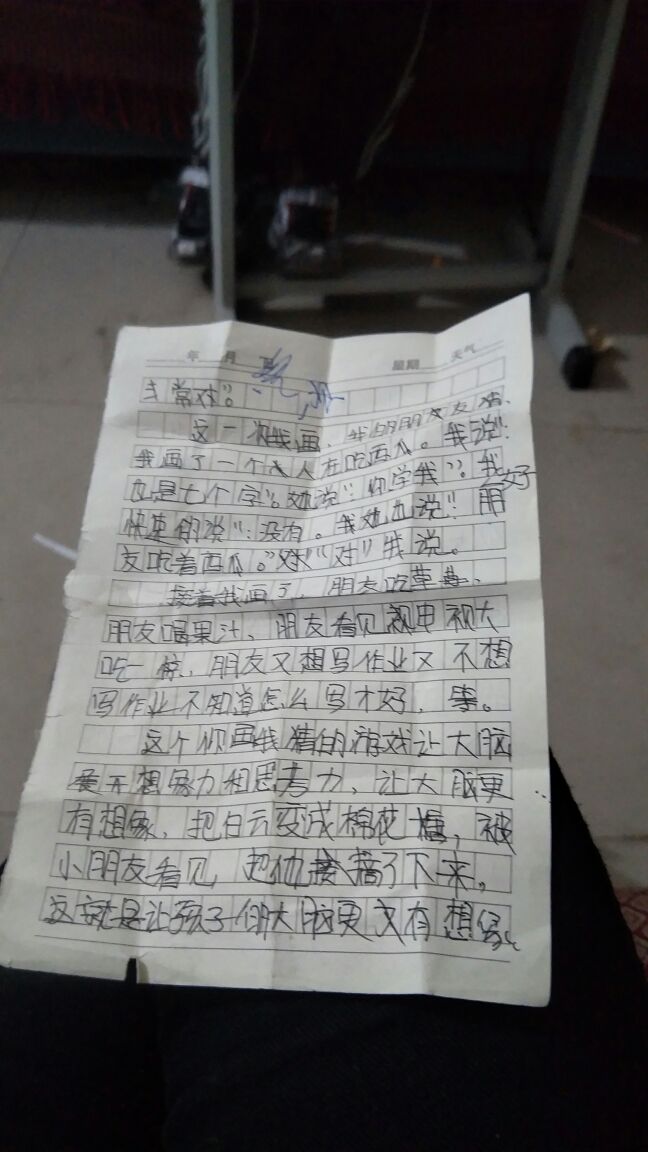 年 月 日 星期 天气
常对”。
这一次我画，我的朋友猜．
我画了一个人在吃西瓜。我说“
也是七个字”。她说“：你学我”？我
快速的说“：没有。我她也说“朋好
友吃着西瓜。”“对”“对”我说。
接着我画了，朋友吃草莓、
朋友喝果汁、朋友看见电视大
吃一惊，朋友又想写作业又不想
写作业不知道怎么写才好，等。
这个你画我猜的游戏让大脑
开想象力和思考力，让大脑更
有想象，把白云变成棉花糖，被
小朋友看见 把他摘了下来。
这就是让孩子们大脑更又有想象